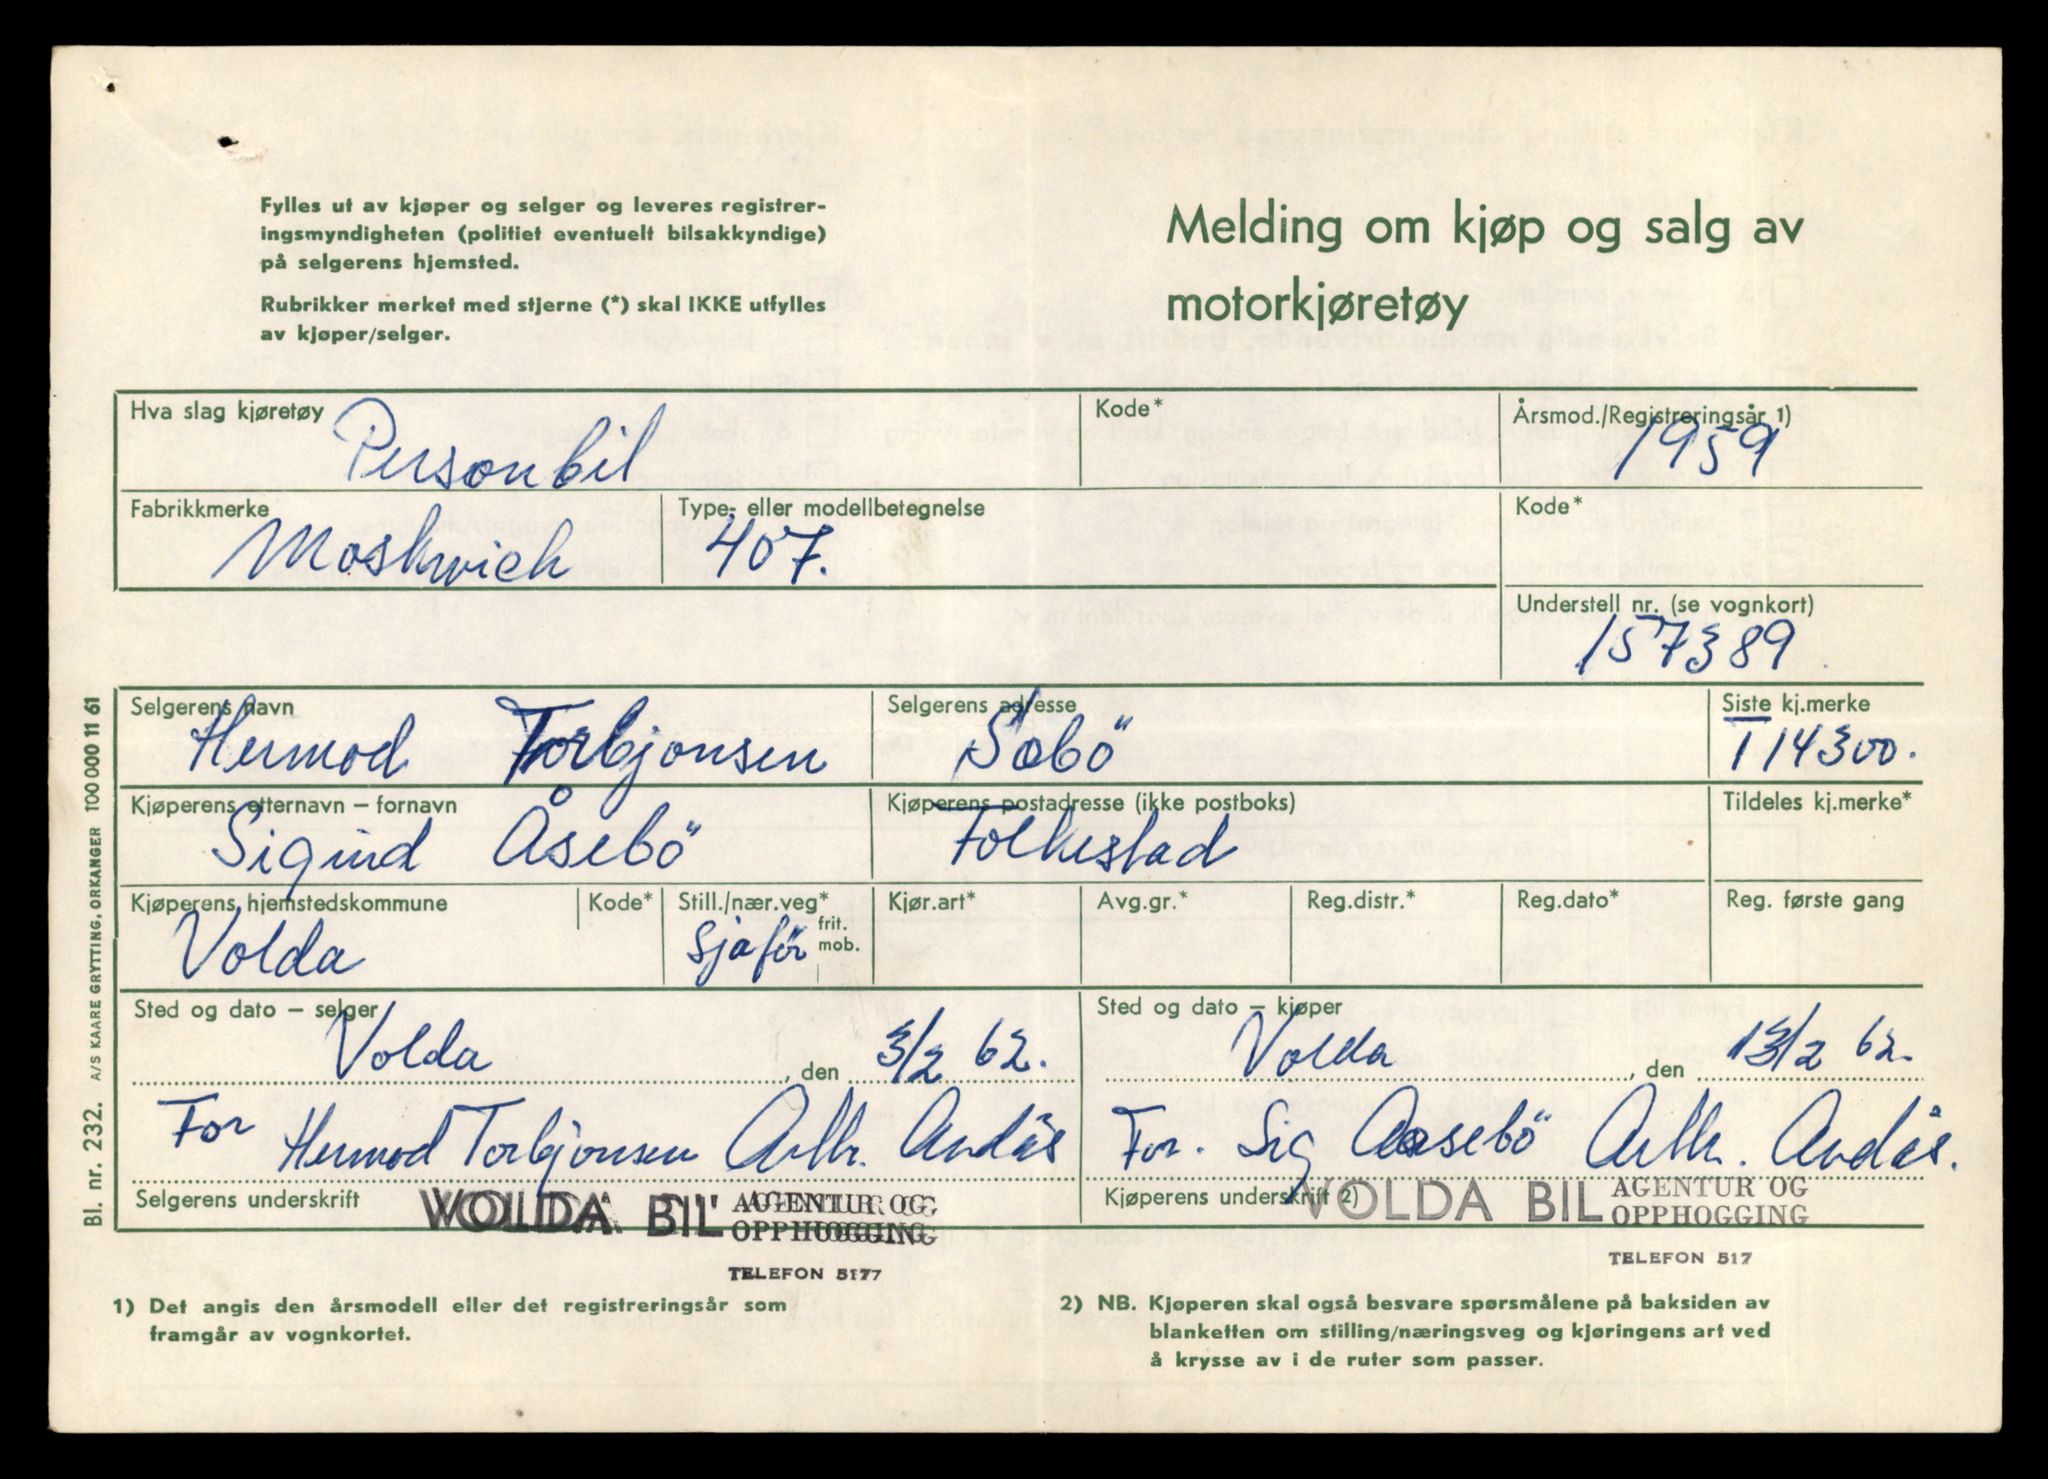 Fylles ut av kjøper og selger og leveres registrer-
ingsmyndigheten (politiet eventuelt bilsakkyndige)
på selgerens hjemsted.
Rubrikker merket med stjerne (*) skal IKKE utfylles
av kjøper/selger.
Melding om kjøp og salg av
motorkjøretøy
Hva slag kjøretøy
Personbil
Kode*
Årsmod./Registreringsår 1)
1959
Fabrikkmerke
Moskwich
Type- eller modellbetegnelse
407.
Kode*
Understell nr. (se vognkort)
157389
Selgerens navn
Hermod Torbjonsen
Selgerens adresse
Sæbö
Siste kj.merke
T 14300.
Kjøperens etternavn – fornavn
Sigurd Åsebö
Kjøperens postadresse (ikke postboks)
Folkestad
Tildeles kj.merke*
Kjøperens hjemstedskommune
Volda
Kode*
Still./nær.veg*
Sjaför
frit.
mob.
Kjør.art*
Avg.gr.*
Reg.distr.*
Reg.dato*
Reg. første gang
Sted og dato – selger
Volda , den 3/2 62.
For Hermod Torbjonsen Arth. Andås
Selgerens underskrift
VOLDA BIL AGENTUR OG
OPPHOGGING
TELEFON 517
Sted og dato – kjøper
Volda , den 13/2 62.
For. Sig Aasebö Arth. Andås.
Kjøperens underskrift 2)
VOLDA BIL AGENTUR OG
OPPHOGGING
TELEFON 517
1) Det angis den årsmodell eller det registreringsår som
framgår av vognkortet.
2) NB. Kjøperen skal også besvare spørsmålene på baksiden av
blanketten om stilling/næringsveg og kjøringens art ved
å krysse av i de ruter som passer.
Bl. nr. 232. A/S KAARE GRYTTING, ORKANGER 100 000 11 61